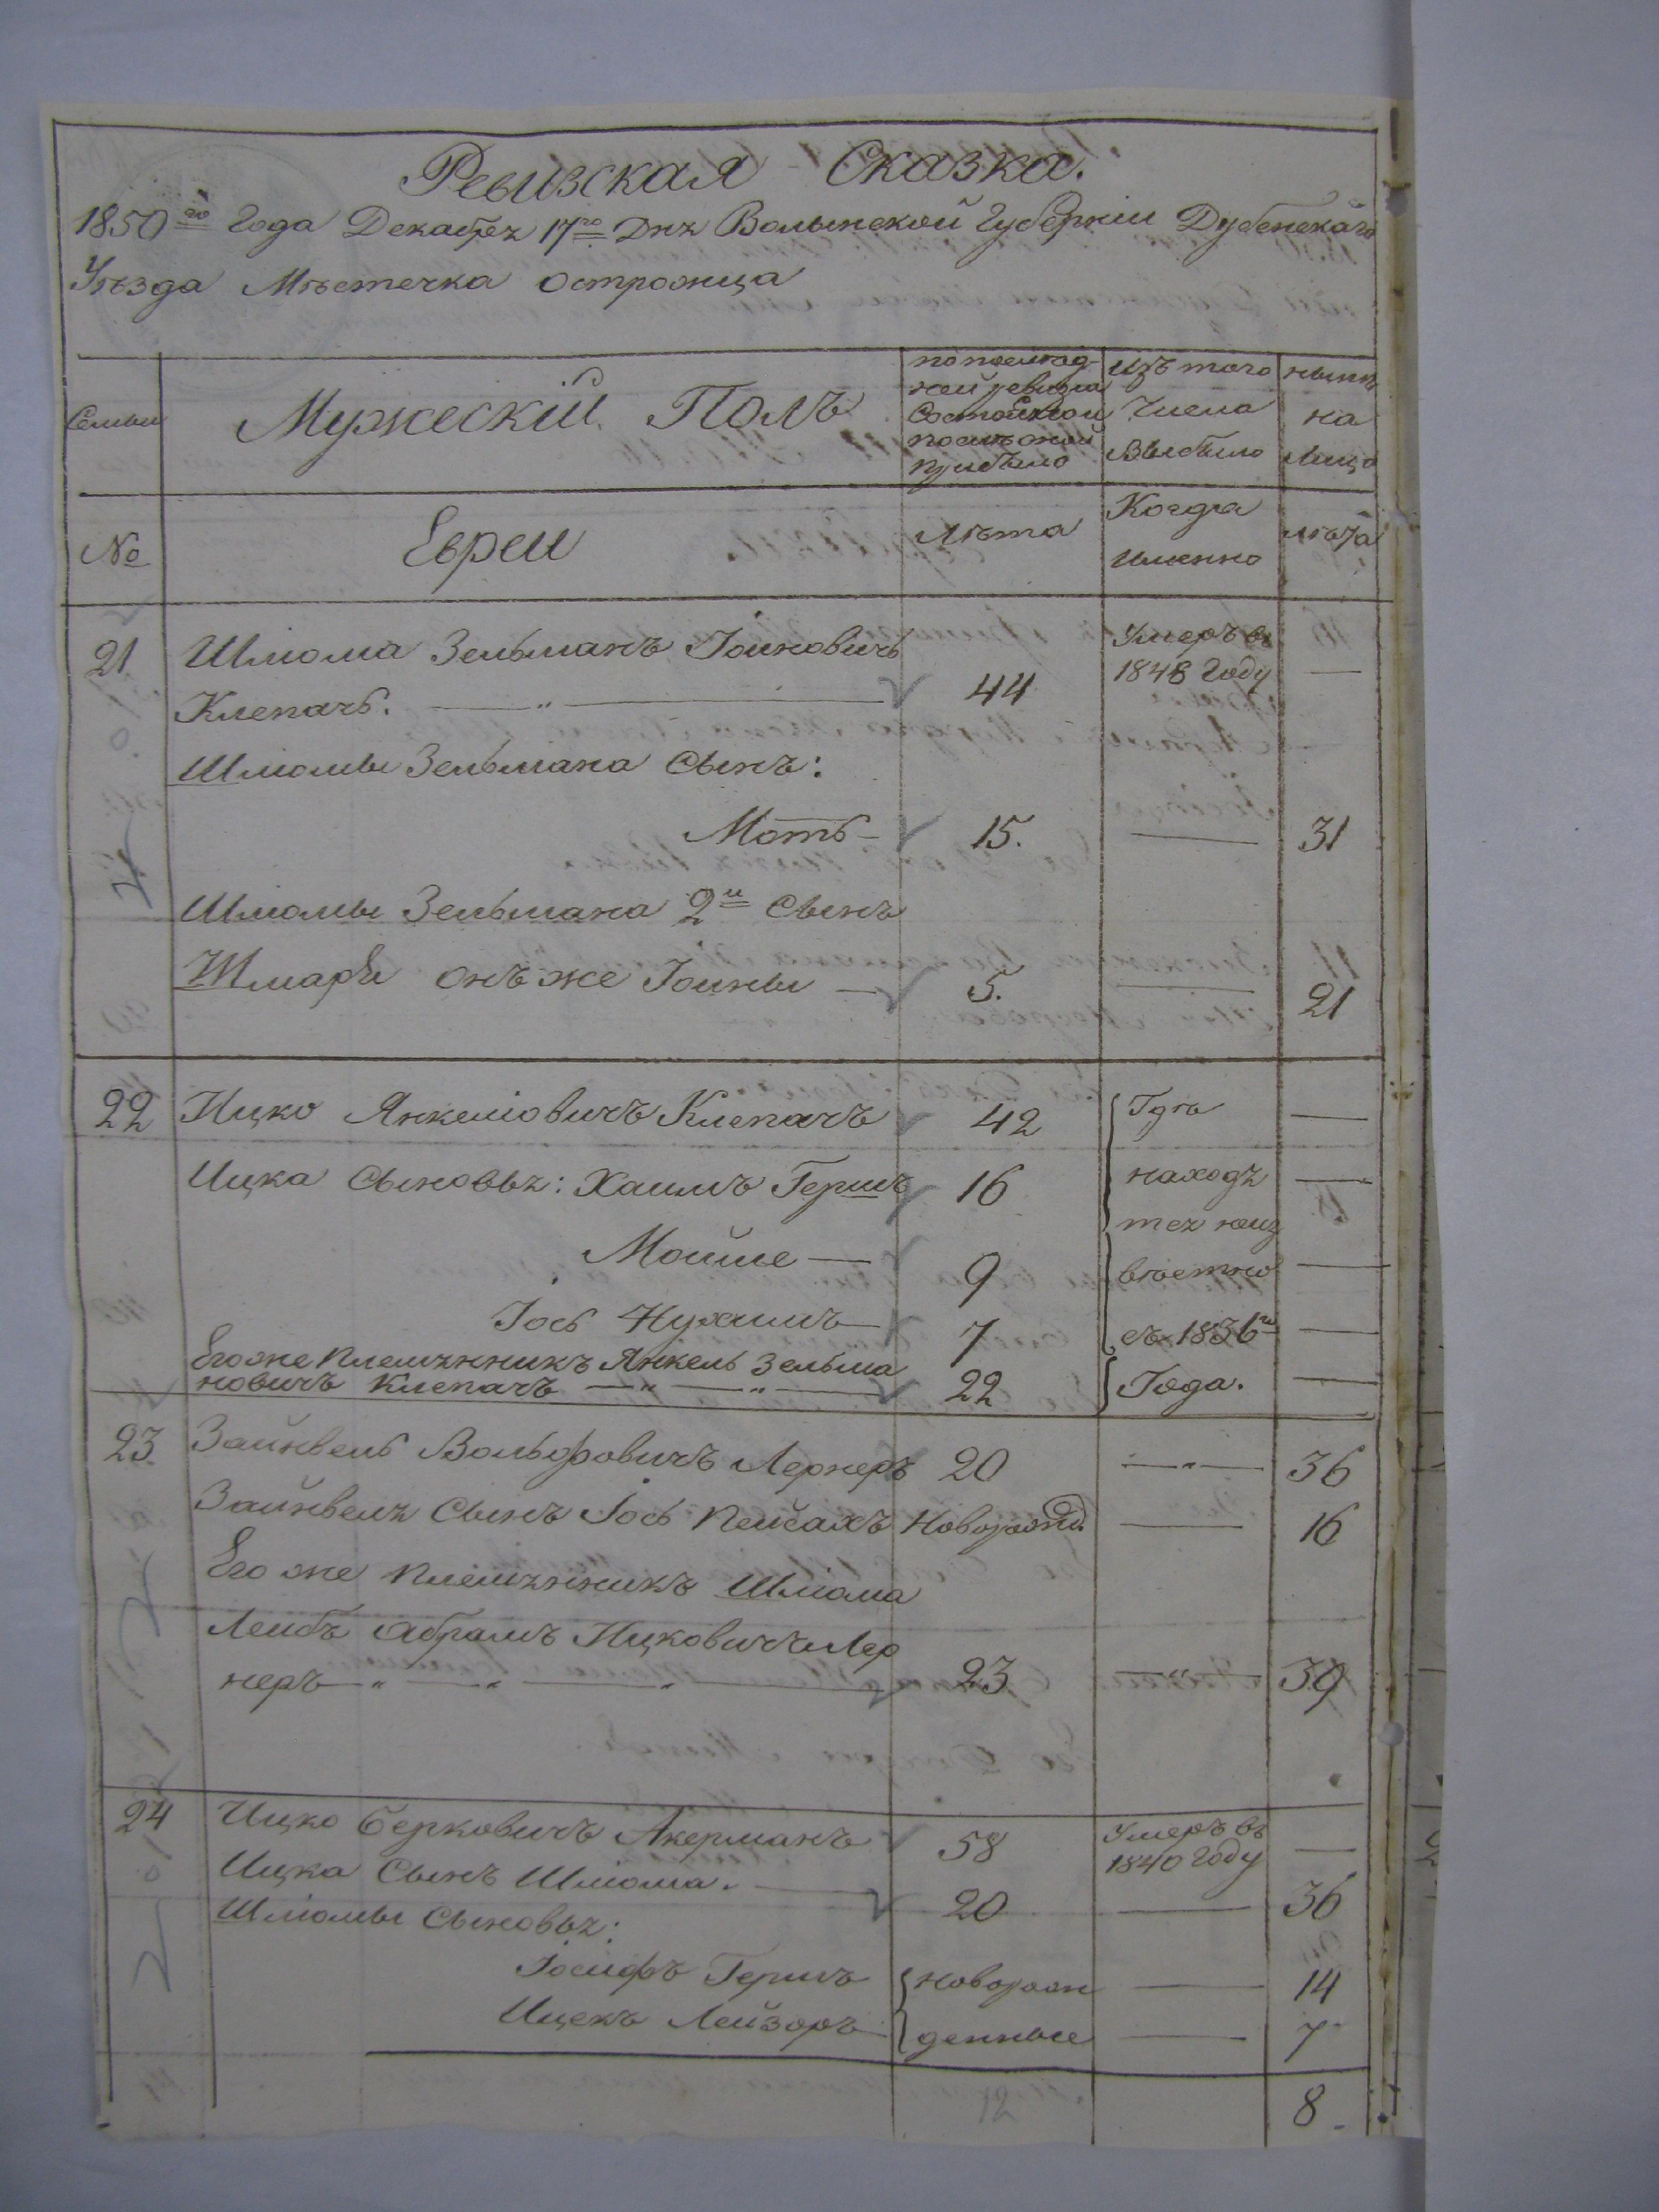 Ревизская Сказка.
1850го Года Декабря 17го Дня Волынской Губерніи Дубенскаго
Уѣзда Мѣстечка Острожца
Семьи
Мужескій Полъ
по послѣд-
ней ревизіи
Состояло и
послѣ оной
прибыло
Изъ того
Числа
Выбыло
нынѣ
на
Лицо
№
Евреи
Лѣта
Когда
именно
лѣта
21 Шліома Зельманъ Іоиновичъ Умеръ въ
Клепачъ. 44 1848 Году —
Шліомы Зельмана Сынъ:
Моть 15. — 31
Шліомы Зельмана 2й Сынъ
Шмарfi онъ же Іоины 5. — 21
22 Ицко Янкеліовичъ Клепачъ 42 Гдѣ —
Ицка Сыновья: Хаимъ Гершъ 16 находя —
тся неиз
Мойше — 9 вѣстно —
Іось Нухимъ 7 съ 1836го —
Его же племянникъ Янкель Зельма
новичъ Клепачъ 22 Года. —
23 Зайнвель Вольфовичъ Лернеръ 20 — 36
Зайнвеля Сынъ Іось Пейсахъ Новорожд. — 16
Его же племянникъ Шліома
Лейбъ Абрамъ Ицковичъ Лер
неръ 23 — 39
24 Ицко Берковичъ Акерманъ 58 Умеръ въ
1840 Году —
Ицка Сынъ Шліома. 20 — 36
Шліомы Сыновья:
Іосифъ Гершъ новорож — 14
Ицекъ Лейзоръ денные — 7
8